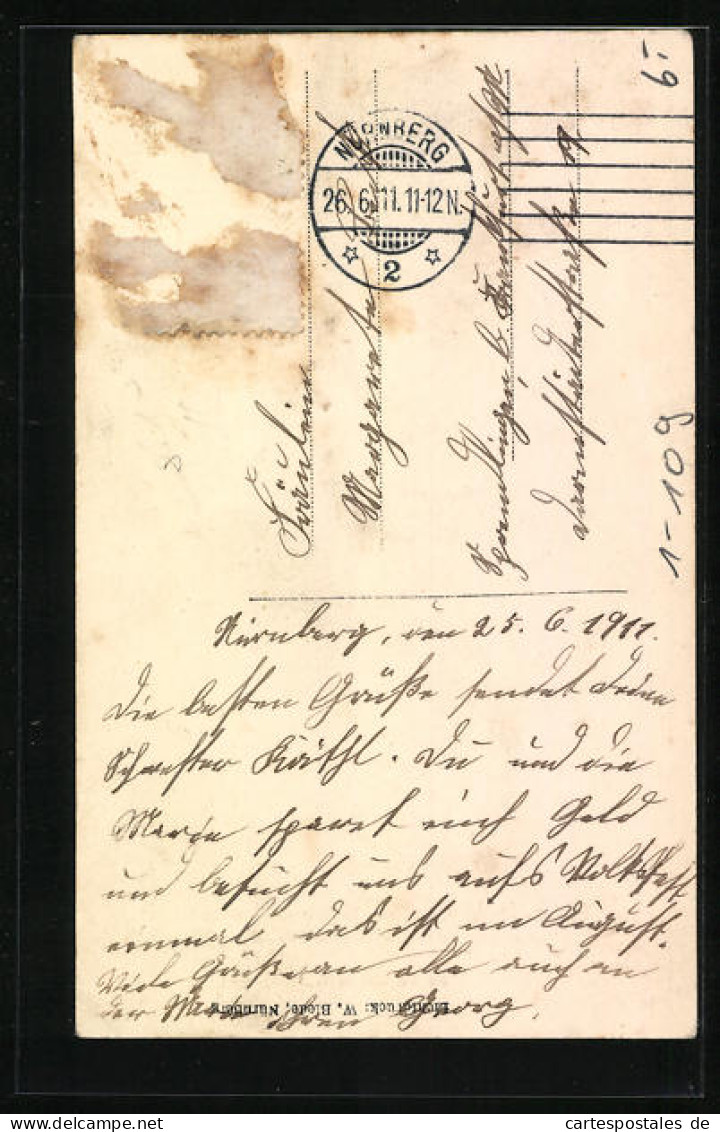 6.-
NÜRNBERG
26. 6. 11. 11-12 N.
2
Fräulein
Margareta
1-109
Nürnberg, den 25. 6. 1911.
Die besten Grüße sendet Deine
Schwester Käthl. Du und die
Marie sparet euch Geld
und besucht uns aufs Volksfest
einmal das ist im August.
Viele Grüße an alle auch an
der Georg.
Lichtdruck: W. Biede, Nürnberg
cartespostales.de
cartespostales.de